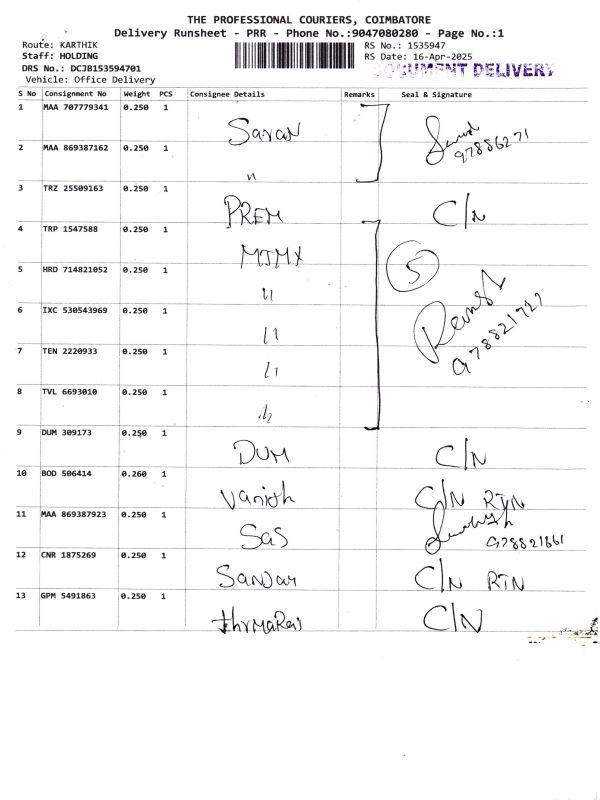 THE PROFESSIONAL COURIERS, COIMBATORE
Delivery Runsheet - PRR - Phone No.:9047080280 - Page No.:1
Route: KARTHIK RS No.: 1535947
Staff: HOLDING RS Date: 16-Apr-2025
DRS No.: DCJB153594701 DOCUMENT DELIVERY
Vehicle: Office Delivery
S No Consignment No Weight PCS Consignee Details Remarks Seal & Signature
1 MAA 707779341 0.250 1 Saran
97886271
2 MAA 869387162 0.250 1 "
3 TRZ 25509163 0.250 1 PREM C/N
4 TRP 1547588 0.250 1 MJMX
5
5 HRD 714821052 0.250 1 "
6 IXC 530543969 0.250 1 "
978821727
7 TEN 2220933 0.250 1 "
8 TVL 6693010 0.250 1 "
9 DUM 309173 0.250 1 DUM C/N
10 BOD 506414 0.260 1 Vanith C/N RTN
11 MAA 869387923 0.250 1 Sas
978821661
12 CNR 1875269 0.250 1 C/N RTN
13 GPM 5491863 0.250 1 C/N